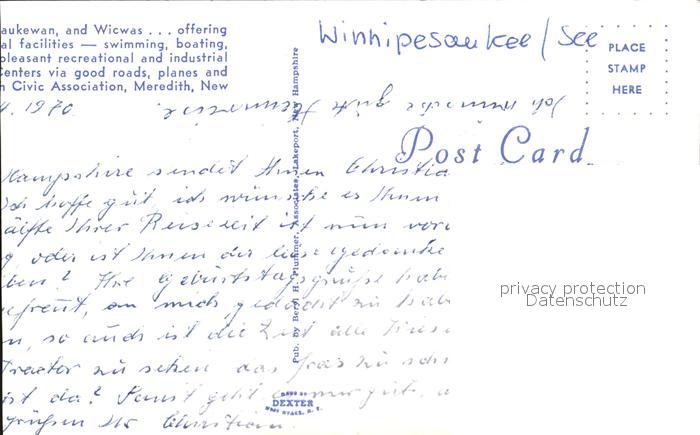 aukewan, and Wicwas . . . offering
al facilities — swimming, boating,
pleasant recreational and industrial
Centers via good roads, planes and
n Civic Association, Meredith, New
Winnipesaukee / See
PLACE
STAMP
HERE
4. 1970
Ich wünsche gute
Post Card
Hampshire sendet Ihnen Christia
Ich hoffe gut, ich wünsche es Ihnen
älfte Ihrer Reisezeit ist nun vor
g, oder ist Ihnen der liebe gedanke
ben? Ihre Geburtstagsgrüße habe
efreut, an mich gedacht zu hab
n, so auch ist die Zeit alle
Tractor zu sehen das Gras zu
ist da? Sonst geht es mir gut, a
grüßen Christian.
Pub. by Beryl H. Plummer, Associates, Lakeport, New Hampshire
MADE BY
DEXTER
WEST NYACK, N. Y.
privacy protection
Datenschutz